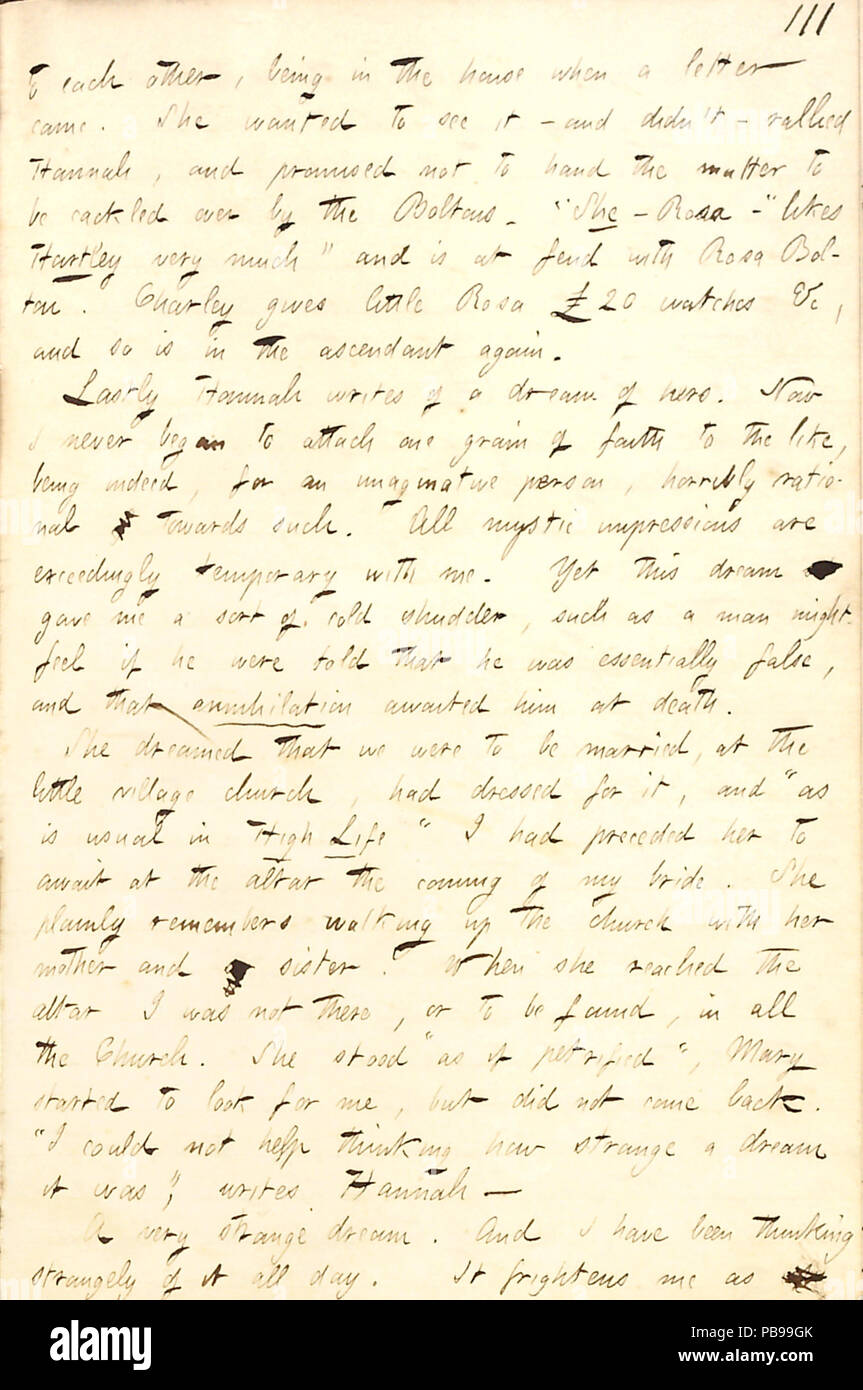 111
to each other, being in the house when a letter
came. She wanted to see it - and didn't - rallied
Hannah, and promised not to hand the matter to
be cackled over by the Boltons. "She - Rosa -" likes
Hartley very much" and is at feud with Rosa Bol-
ton. Charley gives little Rosa £20 watches &c,
and so is in the ascendant again.
Lastly Hannah writes of a dream of hers. Now
I never began to attach one grain of faith to the like,
being indeed, for an imaginative person, horribly ratio-
nal towards such. All mystic impressions are
exceedingly temporary with me. Yet this dream
gave me a sort of cold shudder, such as a man might
feel if he were told that he was essentially false,
and that annihilation awaited him at death.
She dreamed that we were to be married, at the
little village church, had dressed for it, and "as
is usual in High Life" I had preceded her to
await at the altar the coming of my bride. She
plainly remembers walking up the church with her
mother and sister. When she reached the
altar I was not there, or to be found, in all
the Church. She stood "as if petrified", Mary
started to look for me, but did not come back.
"I could not help thinking how strange a dream
it was", writes Hannah —
A very strange dream. And I have been thinking
strangely of it all day. It frightens me as
alamy
Image ID: PB99GK
www.alamy.com